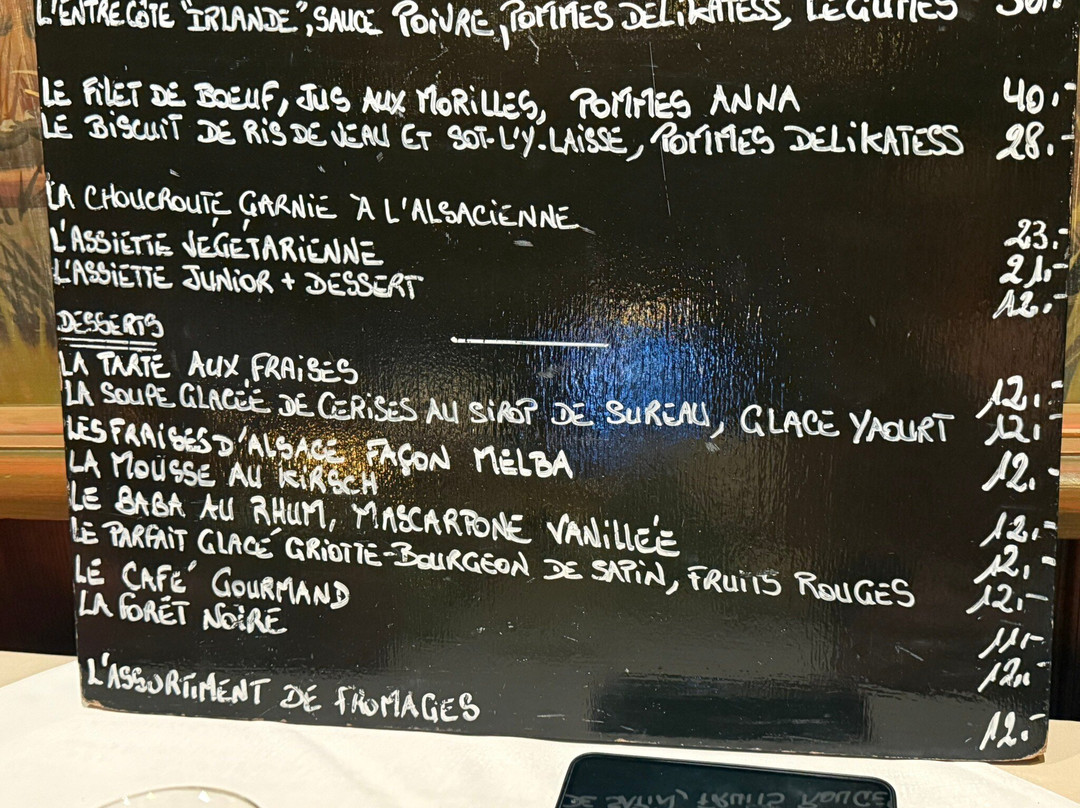 L'ENTRECÔTE "IRLANDE", SAUCE POIVRE, POMMES DELIKATESS, LEGUMES
LE FILET DE BOEUF, JUS AUX MORILLES, POMMES ANNA 40.-
LE BISCUIT DE RIS DE VEAU ET SOT-L'Y-LAISSE, POMMES DELIKATESS 28.-
LA CHOUCROUTE GARNIE À L'ALSACIENNE 23.-
L'ASSIETTE VEGETARIENNE 21.-
L'ASSIETTE JUNIOR + DESSERT 12.-
DESSERTS
LA TARTE AUX FRAISES 12.-
LA SOUPE GLACÉE DE CERISES AU SIROP DE SUREAU, GLACE YAOURT 12.-
LES FRAISES D'ALSACE FAÇON MELBA 12.-
LA MOUSSE AU KIRSCH 12.-
LE BABA AU RHUM, MASCARPONE VANILLÉE 12.-
LE PARFAIT GLACÉ GRIOTTE-BOURGEON DE SAPIN, FRUITS ROUGES 12.-
LE CAFÉ GOURMAND 11.-
LA FORÊT NOIRE 12.-
L'ASSORTIMENT DE FROMAGES 12.-
DE SAPIN, FRUITS ROUGE